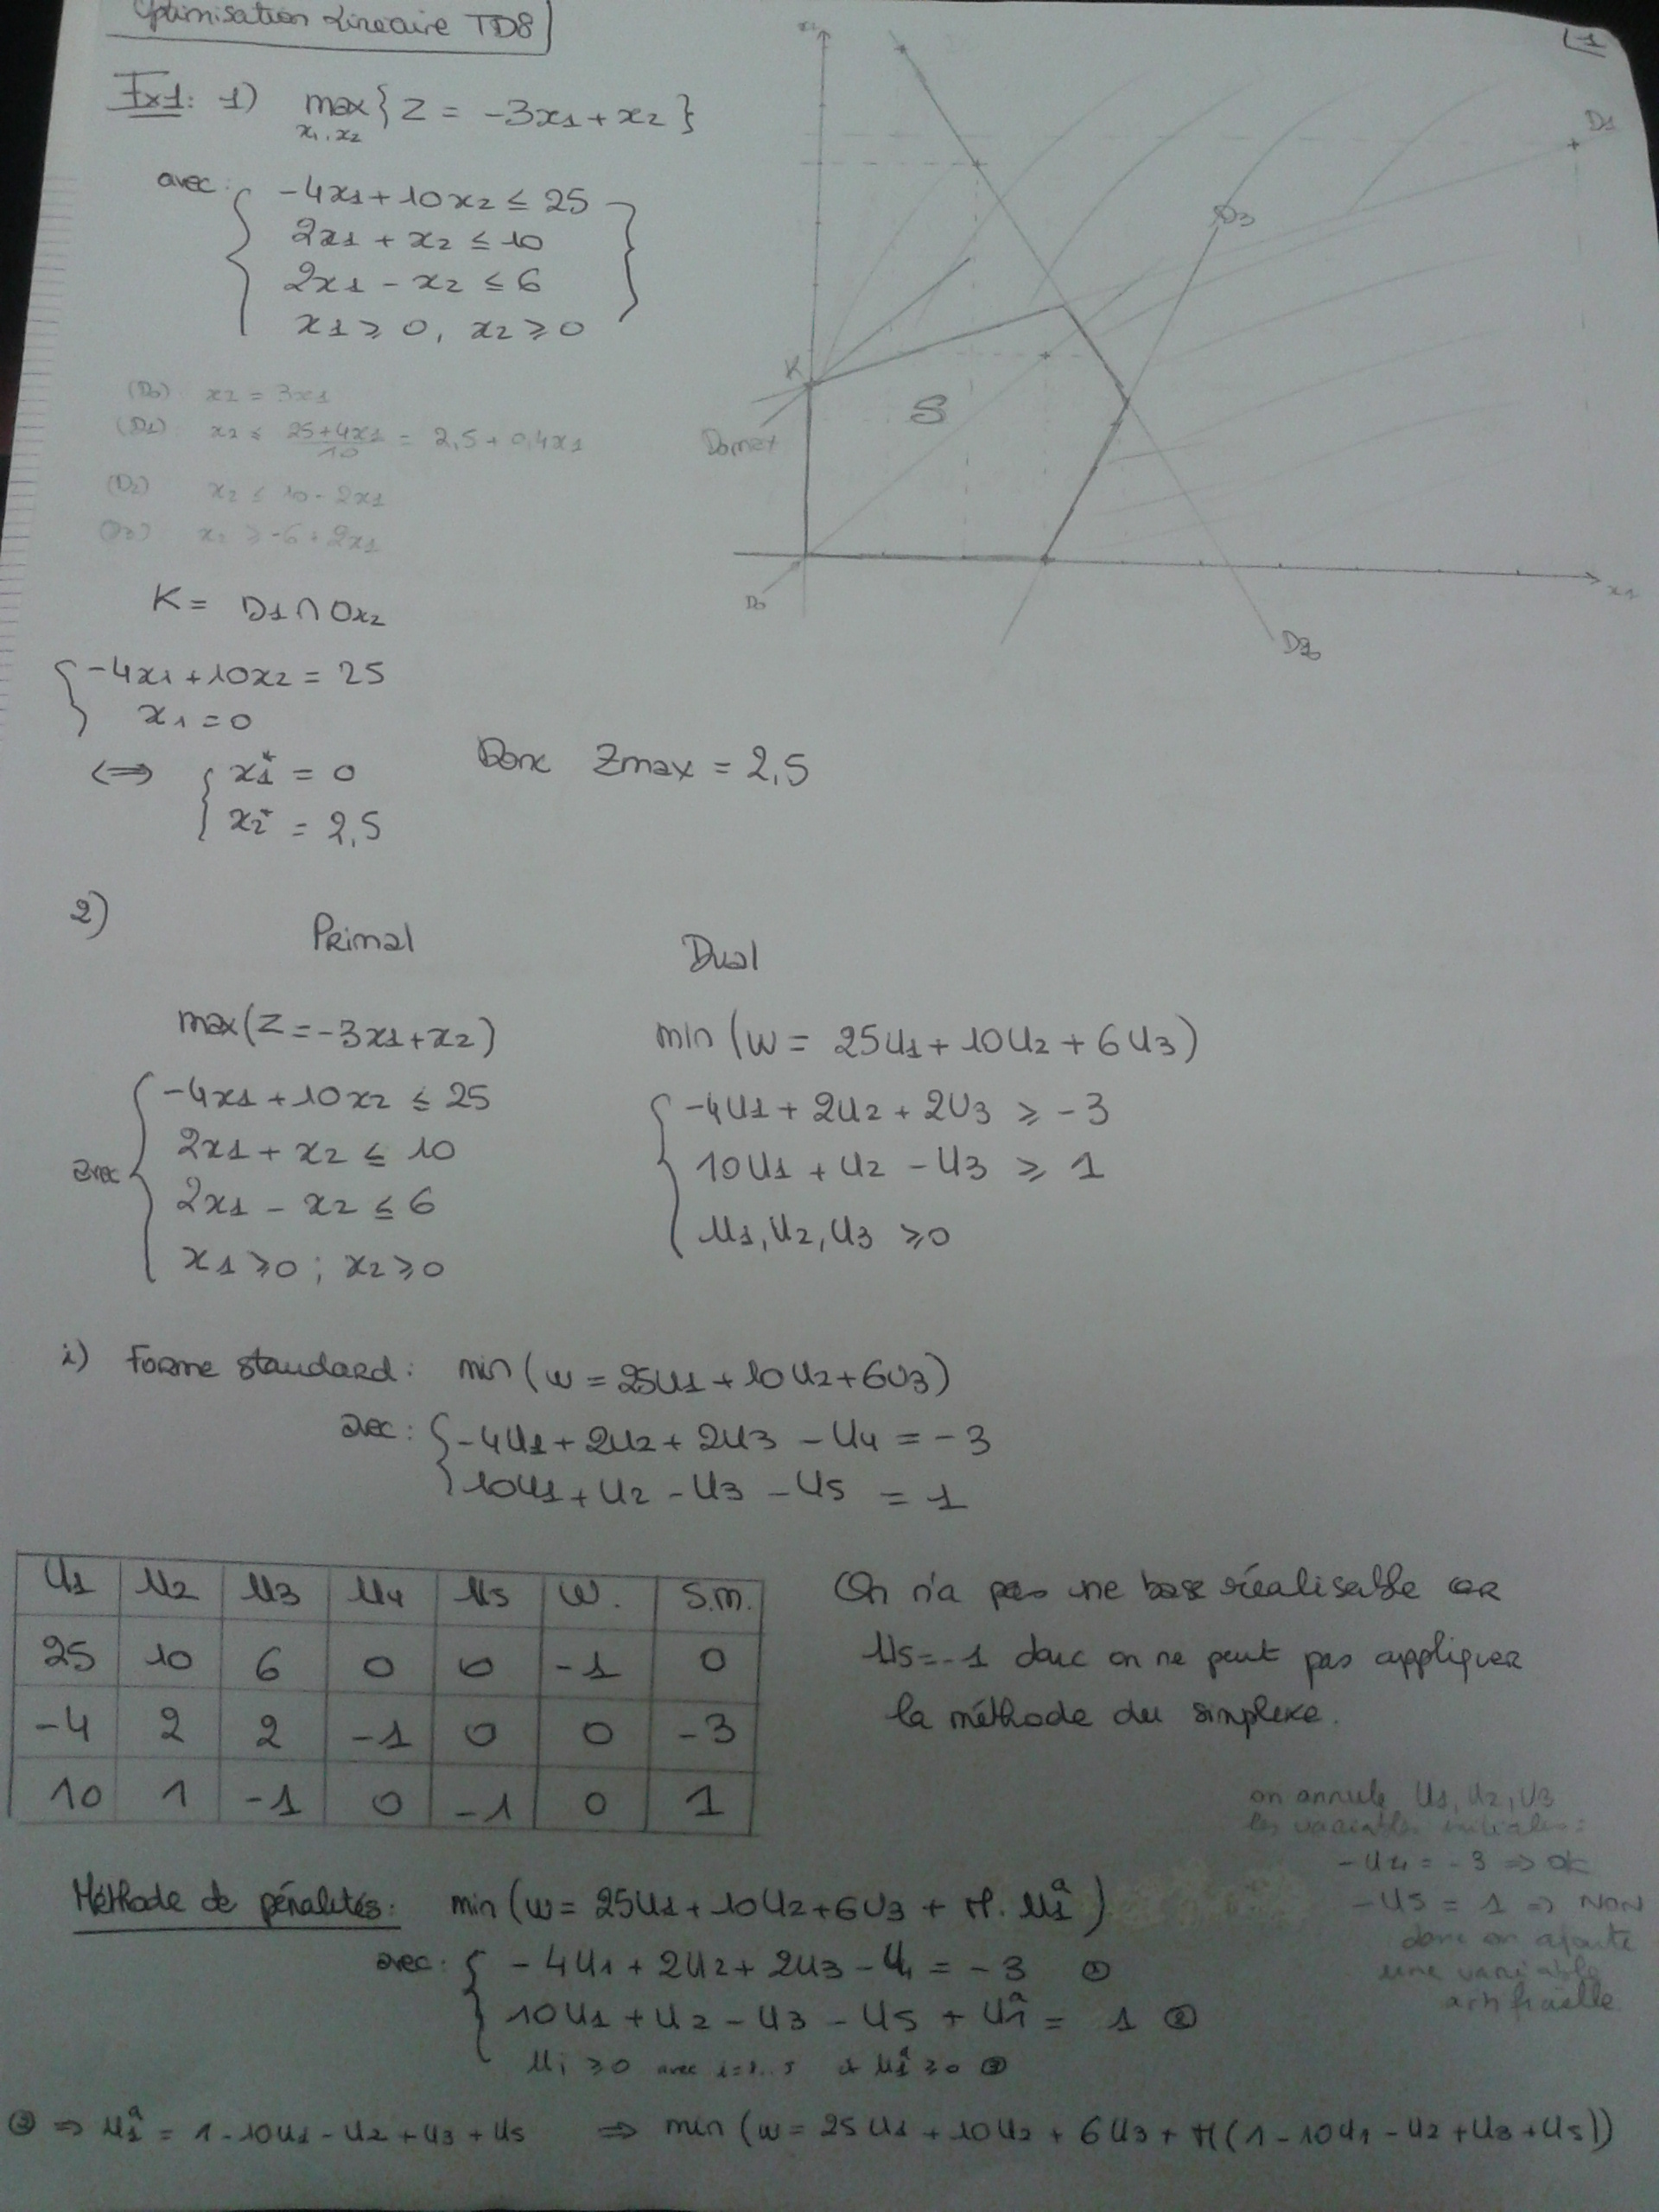 Optimisation Linéaire TD8
1
Ex1: 1) max { Z = -3x1 + x2 }
x1, x2
avec:
-4x1 + 10x2 ≤ 25
2x1 + x2 ≤ 10
2x1 - x2 ≤ 6
x1 ≥ 0, x2 ≥ 0
(D0) x2 = 3x1
(D1) x2 ≤ 25+4x1/10 = 2,5 + 0,4x1
(D2) x2 ≤ 10 - 2x1
(D3) x2 ≥ -6 + 2x1
D1
D3
K
S
D0max
D0
x1
D2
K = D1 ∩ Ox2
-4x1 + 10x2 = 25
x1 = 0
⟺ x1* = 0
x2* = 2,5
Donc Zmax = 2,5
2)
Primal Dual
max(Z = -3x1 + x2) min (w = 25u1 + 10u2 + 6u3)
avec
-4x1 + 10x2 ≤ 25 -4u1 + 2u2 + 2u3 ≥ -3
2x1 + x2 ≤ 10 10u1 + u2 - u3 ≥ 1
2x1 - x2 ≤ 6 u1, u2, u3 ≥ 0
x1 ≥ 0 ; x2 ≥ 0
i) Forme standard: min (w = 25u1 + 10u2 + 6u3)
avec: -4u1 + 2u2 + 2u3 - u4 = -3
10u1 + u2 - u3 - u5 = 1
u1 u2 u3 u4 u5 w. S.m.
25 10 6 0 0 -1 0
-4 2 2 -1 0 0 -3
10 1 -1 0 -1 0 1
On n'a pas une base réalisable car
u5 = -1 donc on ne peut pas appliquer
la méthode du simplexe.
on annule u1, u2, u3
les variables initiales:
-u4 = -3 => ok
-u5 = 1 => NON
donc on ajoute
une variable
artificielle
Méthode de pénalités: min (w = 25u1 + 10u2 + 6u3 + M. u1ᵃ)
avec: -4u1 + 2u2 + 2u3 - u4 = -3 ①
10u1 + u2 - u3 - u5 + u1ᵃ = 1 ②
ui ≥ 0 avec i=1..5 et u1ᵃ ≥ 0 ③
② => u1ᵃ = 1 - 10u1 - u2 + u3 + u5 => min (w = 25u1 + 10u2 + 6u3 + M(1 - 10u1 - u2 + u3 + u5))